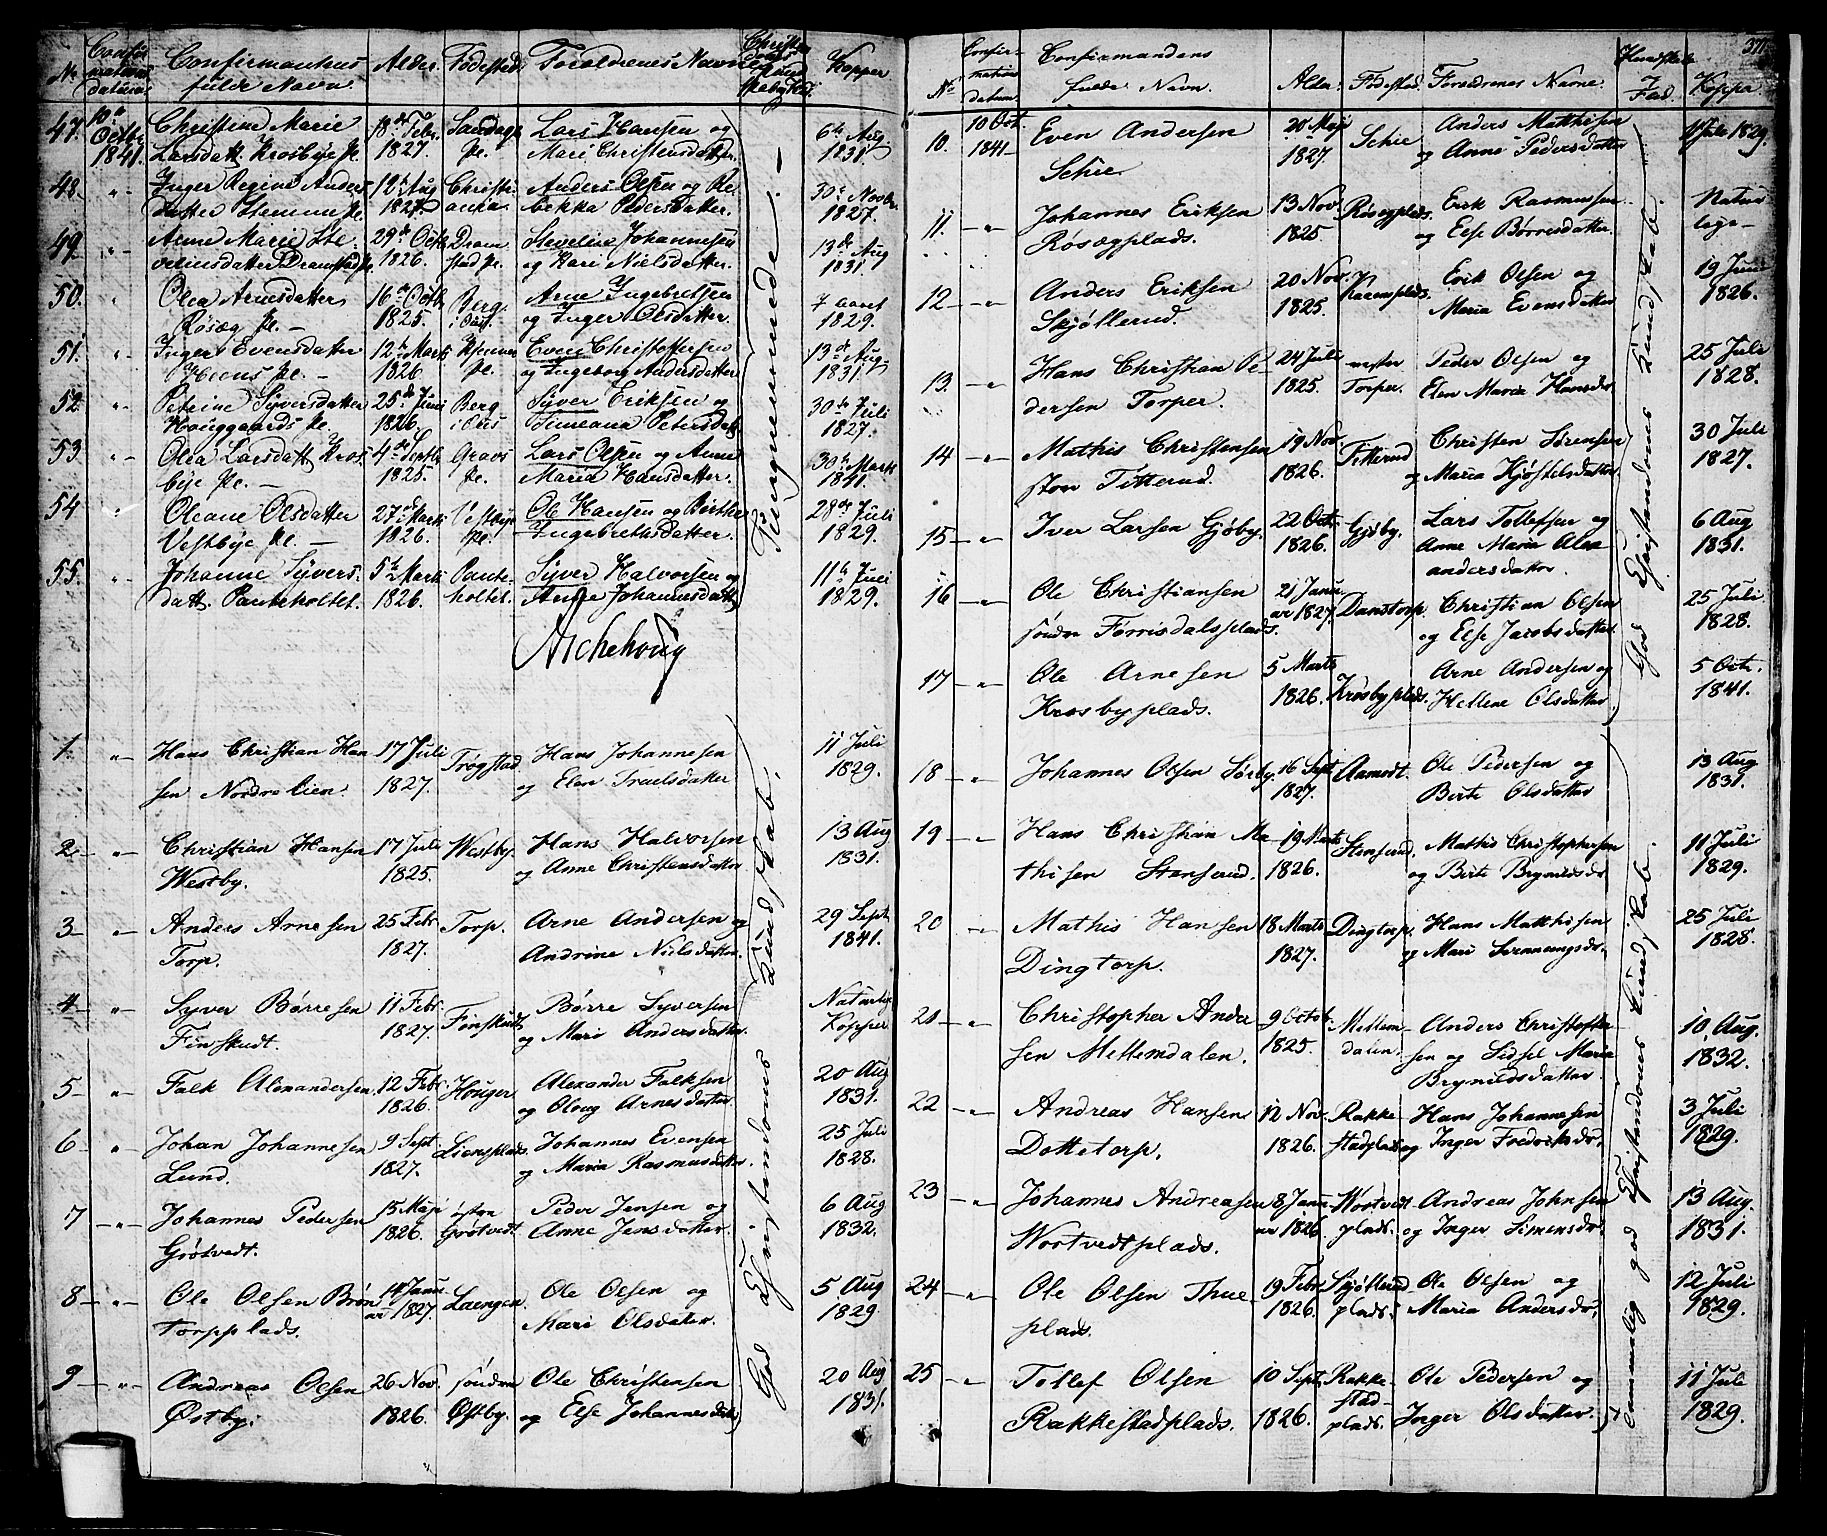 No. Confir-mations datum. Confirmandens fulde Navn. Alder. Fødested. Forældrenes Navn. Kopper
47. 10de Octbr. 1841. Christine Marie 18de Febr. Lars Hansen og 6te Aug
Larsdatt. Krosbye pl. 1827. pl. Mari Christensdatter. 1831.
48. Inger Regine Anders 12te Aug Christi Anders Olsen og Re 30te Novbr.
datter pl. 1827. ania. bekka Pedersdatter. 1827.
49. Anne Marie Ste 29de Octb. Dram Steveline Johannesen 13de Aug
velinsdatter Dramstad pl. 1826. stad pl. og Kari Nielsdatter. 1831.
50. Olea Arnesdatter 16de Octb. Berg Arne Ingebretsen 7 Aaret
Røsæg pl. 1825. og Inger Olsdatter. 1829.
51. Inger Evensdatter 12te Marts Even Christoffersen 13de Aug
pl. 1826 pl. og Ingeborg Andersdatter. 1831.
52 Petrine Syversdatter 25de Juni Berg Syver Eriksen og 30te Juli
Houggaards pl. 1826. Simeana Petersdatt. 1827.
53 Olea Larsdatt. Kros 4de Septb. Lars Olsen og Anne 30te Marts
bye pl. 1825. pl. Maria Hansdatter. 1841.
54 Oleane Olsdatter 27de Marts Vestbye Ole Hansen og Birthe 28de Juli
Vestbye pl. 1826. pl. Ingebrethsdatter. 1829.
55. Johanne Syvers 5te Marts Pante Syver Halvorsen og 11te Juli
datt. Panteholtet. 1826. holtet. Anne Johannesdatt. 1829.
1. Hans Christian Han 17 Juli Trøgstad Hans Johannesen 11 Juli
sen Nordre Lien. 1827. og Elen Truelsdatter 1829.
2 Christian Hansen 17 Juli Westby. Hans Halvorsen 13 Aug
Westby. 1825. og Anne Christensdatter 1831.
3 Anders Arnesen 25 Febr Torp. Arne Andersen og 29 Sept.
Torp. 1827. Andrine Nielsdatter. 1841.
4 Syver Børresen 11 Febr. Finskudt Børre Syversen Naturlig
Finskudt. 1827. og Mari Andersdatter. Kopper
5 Falk Alexandersen. 12 Febr. Houger Alexander Falksen 20 Aug
1826. og Oloug Arnesdatter 1831.
6 Johan Johannesen 9 Sept. Liensplads. Johannes Evensen 25 Juli
Lund. 1827. og Maria Rasmusdatter. 1828.
7 Johannes Pedersen 15 Maji Peder Jensen og 6 Aug
Grøtvedt. 1826. Grøtvedt. Anne Jensdatter. 1832.
8 Ole Olsen Brøn 14 Janu Laengen Ole Olsen og 5 Aug
torpplads. ar 1827. Mari Olsdatter. 1829.
9 Andreas Olsen 26 Nov. søndre Ole Christensen 20 Aug
Østby. 1826. Østby. og Else Johannesdatter 1831.
God Christendoms Kundskab.
371
No. Confir-mations datum Confirmandens fulde Navn. Alder. Fødested. Forældrenes Navne. Kundskab Fød. Kopper
10. 10 Oct. 1841 Even Andersen 20 Maj Schie Anders Matthisen 1829.
Schie 1827. og Anne Pedersdatter
11. Johannes Eriksen 13 Nov. Røsægplads. Erik Rasmussen Natur
Røsægplads. 1825 og Else Børresdatter. lige
12 Anders Eriksen 20 Nov. Erik Olsen og 19 Juni
Skjøllerud. 1825. Maria Evensdatter 1826.
13. Hans Christian Pe 24 Juli Peder Olsen og 25 Juli
dersen Torper. 1825 Torper. Elen Maria Hansdr. 1828.
14 Mathis Christensen 19 Nov. Titterud. Christen Sørensen 30 Juli
Titterud. 1826. og Maria Kjøstelsdatter 1827.
15 Iver Larsen Gjøby. 22 Oct. Gjøby. Lars Tollefsen og 6 Aug
1826. Anne Maria Alex 1831.
andersdatter.
16 Ole Christiansen 21 Janu Danstorp. Christian Olsen 25 Juli
søndre Førrisdalsplads. ar 1827. og Else Jacobsdatter 1828.
17 Ole Arnesen 5 Marts Krosbyplads. Arne Andersen og 5 Oct.
Krosbyplads. 1826. Hellene Olsdatter 1841.
18 Johannes Olsen Sørby. 16 Sept. Aamodt. Ole Pedersen og 13 Aug
1827. Berte Olsdatter 1831.
19 Hans Christian Ma 19 Marts Stenserud. Mathis Christophersen 11 Juli
thisen Stenserud. 1826. og Berte Brynildsdr. 1829.
20 Mathis Hansen 18 Marts Dingtorp. Hans Matthisen 25 Juli
Dingtorp. 1827. og Mari 1828.
21 Christopher Ander 9 Octob. Mellem Anders Christoffer 10 Aug.
sen Mellemdalen. 1825. dalen. sen og Sidsel Maria 1832.
Brynildsdatter.
22 Andreas Hansen 12 Nov. Rakke Hans Johannesen 3 Juli
Dottetorp. 1826. stadplads og Inger Fredriksdr. 1829.
23 Johannes Andreasen 8 Janu Wortvedt Andreas Johnsen 13 Aug.
Wortvedtplads. ar 1826. plads. og Inger Simensdr. 1831.
24 Ole Olsen Thue 19 Febr Skjøllerud Ole Olsen og 12 Juli
plads. 1826. plads. Maria Andersdr. 1829.
25 Tollef Olsen 10 Sept. Rakke Ole Pedersen og 11 Juli
Rakkestadplads. 1826. stad- Inger Olsdatter. 1829.
plads.
God Christendoms Kundskab.
god Christendoms Kundskab.